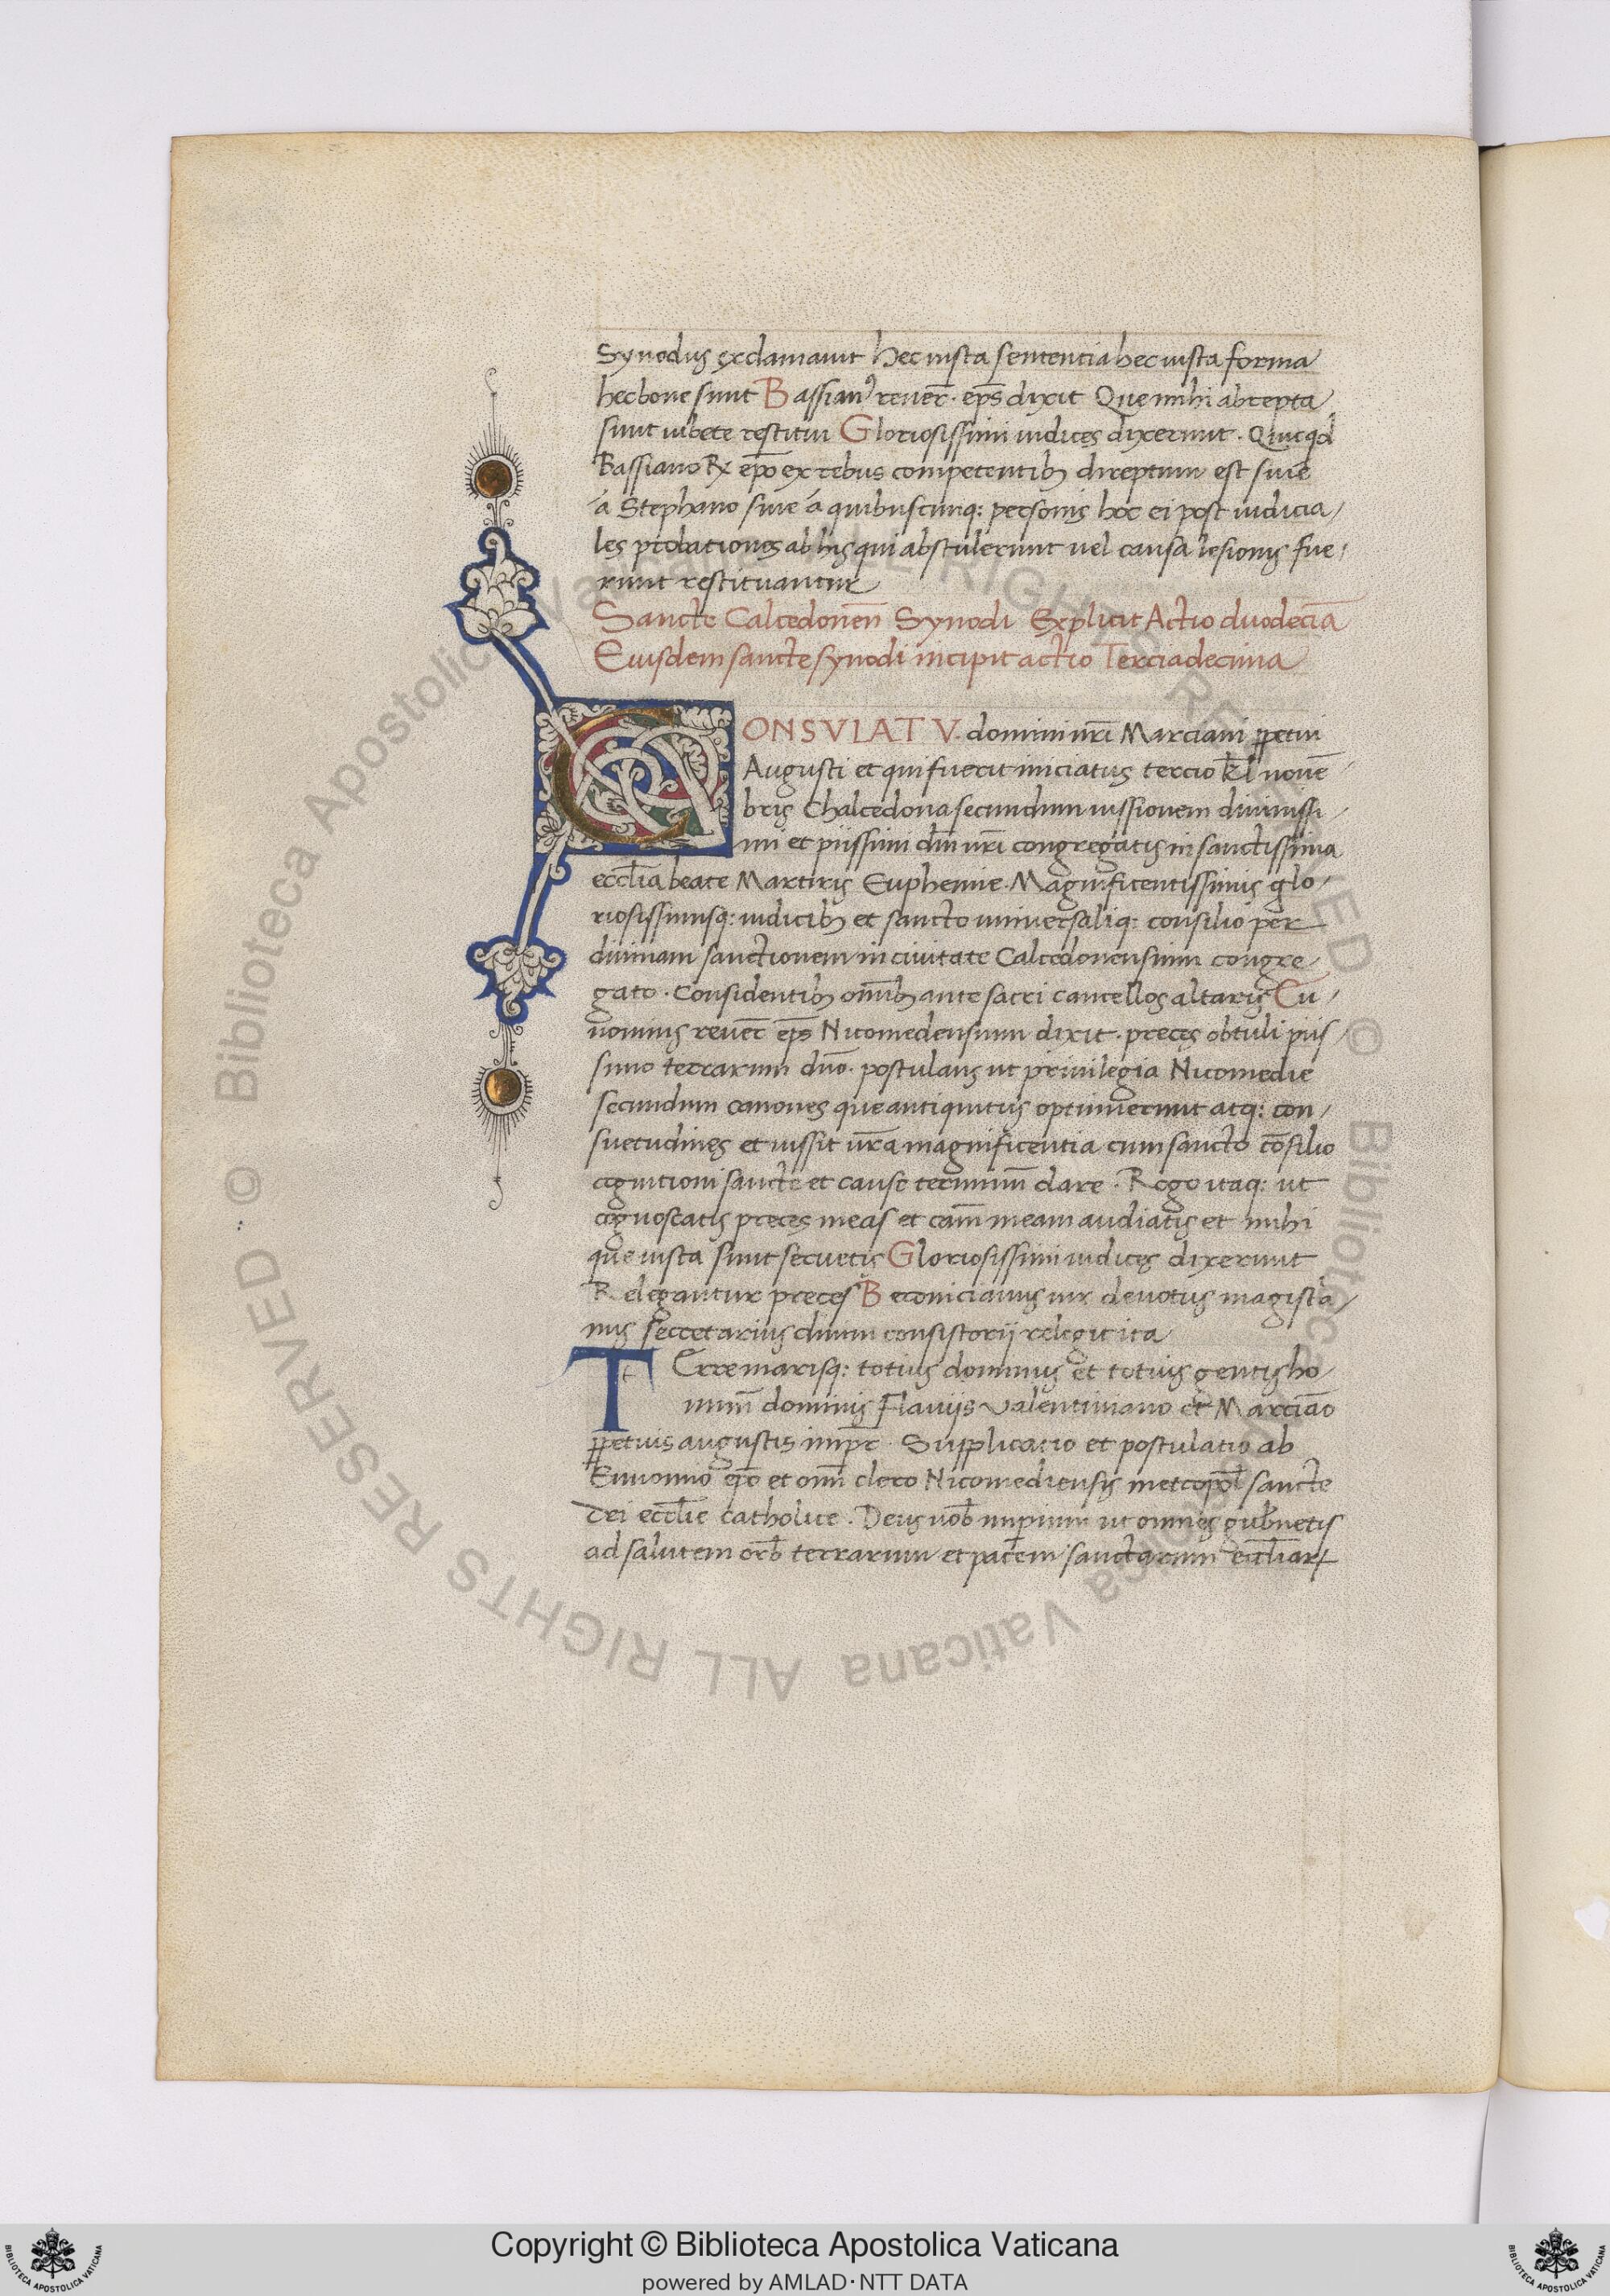 Synodus exclamauit hec iusta sententia hec iusta forma
hec bone sunt Bassianꝰ reuer̄. ep̄s dixit Que mihi abrepta
sunt iubete restitui Gloriosissimi iudices dixerunt. Quicqd
Bassiano Rx ep̄o ex rebus competentibꝫ direptum est siue
á Stephano siue á quibuscunq: personis hoc ei post iudicia/
les probationes ab his qui abstulerunt uel causa lesionis fue/
runt restituantur
Sancte Calcedoneñ Synodi Explicit Actio duodecīa
Eiusdem sancte synodi incipit actio Terciadecima
CONSVLATV. domini nr̄i Marciani ꝑpetui
Augusti et qui fuerit iniciatus tercio kl̄ nouē/
bris Chalcedona secundum iussionem diuinissi/
mi et piissimi dn̄i nr̄i congregatis in sanctissima
eccl̄ia beate Martiris Euphemie. Magnificentissimis glo/
riosissimisq: iudicibꝫ et sancto uniuersaliq: consilio per
diuinam sanctionem in ciuitate Calcedonensium congre/
gato. Considentibꝫ om̄ibꝫ ante sacri cancellos altaris Eu/
nomius reuer̄ ep̄s Nicomedensium dixit. preces obtuli piis/
simo terrarum dn̄o. postulans ut priuilegia Nicomedie
secundum canones que antiquitus optinuerunt atq: con/
suetudines et iussit ur̄a magnificentia cum sancto cōsilio
cognitioni sancte et cause terminum̄ dare. Rogo itaq: ut
cognoscatis preces meas et cam̄ meam audiatis et mihi
que iusta sunt seruetis Gloriosissimi iudices dixerunt
Relegantur preces Beronicianus uir deuotus magistīa/
nus secretarius diuini consistorij relegit ita
TErre marisq: totius dominus et totius gentis ho/
minum̄ dominis Flauijs Valentiniano et Marciāo
ꝑpetuis augustis imp̄r. Supplicatio et postulatio ab
Eunomio ep̄o et om̄i clero Nicomediensis metropol̄ sancte
Dei eccl̄ie catholice. Deus uob̄ imperium ut omnes gub̄netis
ad salutem orb̄ terrarum et pacem sanctarum eccl̄iaꝝ
Copyright © Biblioteca Apostolica Vaticana
powered by AMLAD·NTT DATA
© Biblioteca Apostolica Vaticana ALL RIGHTS RESERVED © Biblioteca Apostolica Vaticana ALL RIGHTS RESERVED
BIBLIOTECA APOSTOLICA VATICANA
BIBLIOTECA APOSTOLICA VATICANA